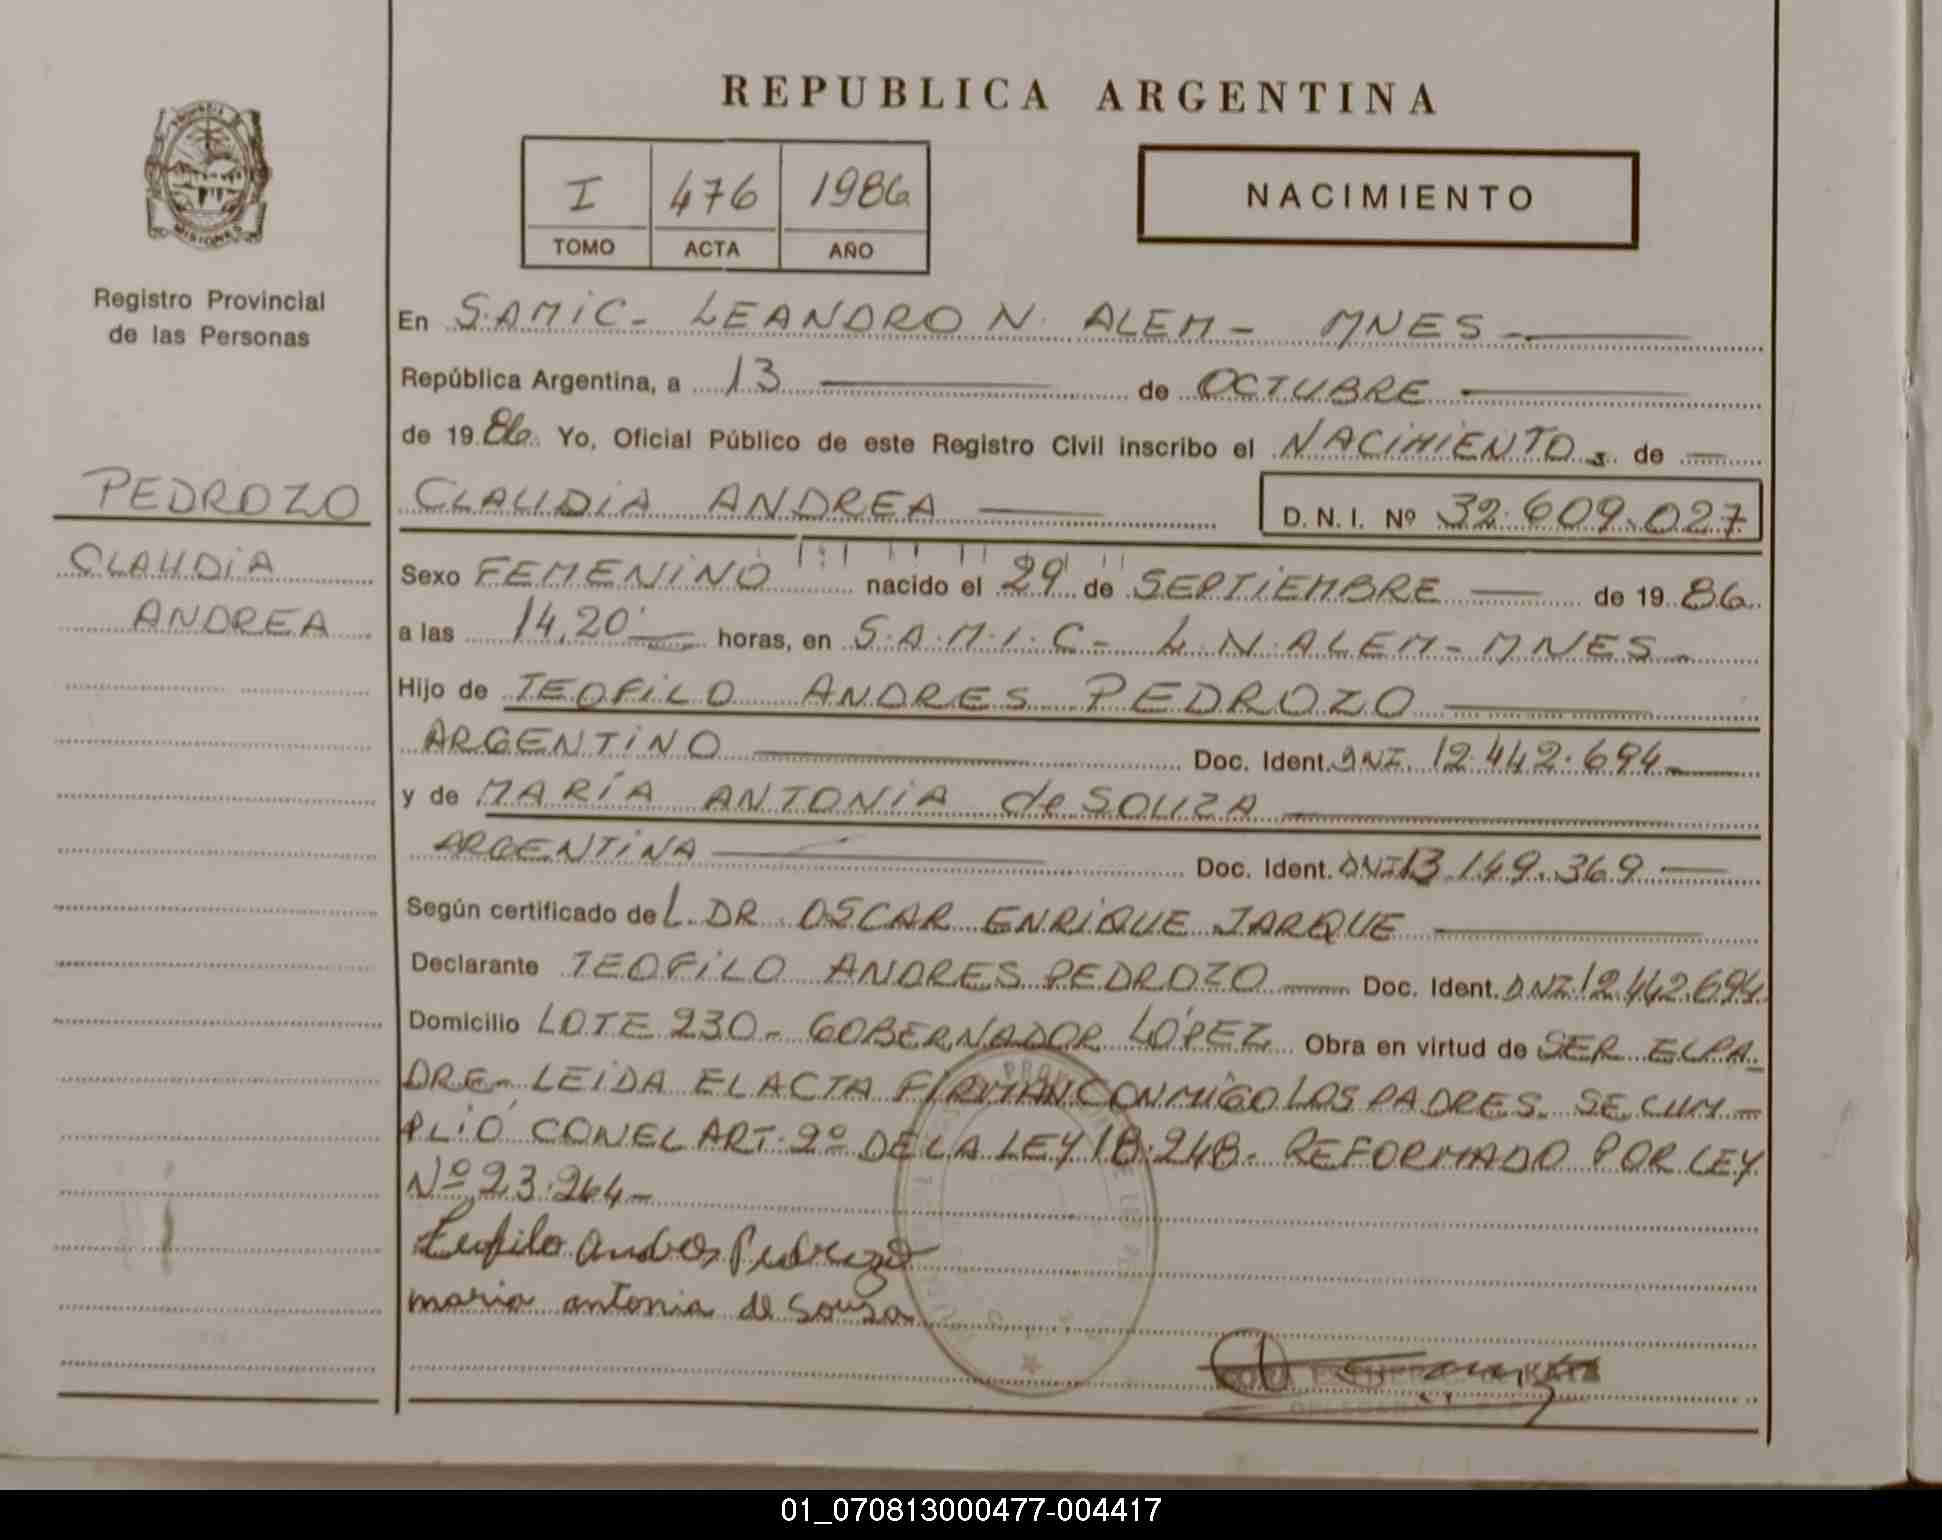 REPUBLICA ARGENTINA
I 476 1986
TOMO ACTA AÑO
NACIMIENTO
MISIONES
Registro Provincial
de las Personas
PEDROZO
CLAUDIA
ANDREA
En S.AMIC- LEANDRO N. ALEM- MNES-
República Argentina, a 13 de OCTUBRE
de 1986. Yo, Oficial Público de este Registro Civil inscribo el NACIMIENTO de
CLAUDIA ANDREA D. N. I. Nº 32.609.027
Sexo FEMENINO nacido el 29 de SEPTIEMBRE de 1986.
a las 14,20 horas, en S.A.M.I.C- L.N.ALEM-MNES-
Hijo de TEOFILO ANDRES PEDROZO
ARGENTINO Doc. Ident. DNI. 12.442.694-
y de MARÍA ANTONIA de SOUZA
ARGENTINA Doc. Ident. DNI 13.149.369
Según certificado de L. DR. OSCAR ENRIQUE JARQUE
Declarante TEOFILO ANDRES PEDROZO Doc. Ident. DNI.12.442.694
Domicilio LOTE 230- GOBERNADOR LÓPEZ Obra en virtud de SER EL PA-
DRE- LEIDA EL ACTA FIRMAN CONMIGO LOS PADRES. SE CUM-
PLIÓ CON EL ART. 2º DE LA LEY 18.248- REFORMADO POR LEY
Nº 23.264-
Teofilo Andres Pedrozo
maria antonia de Souza
01_070813000477-004417